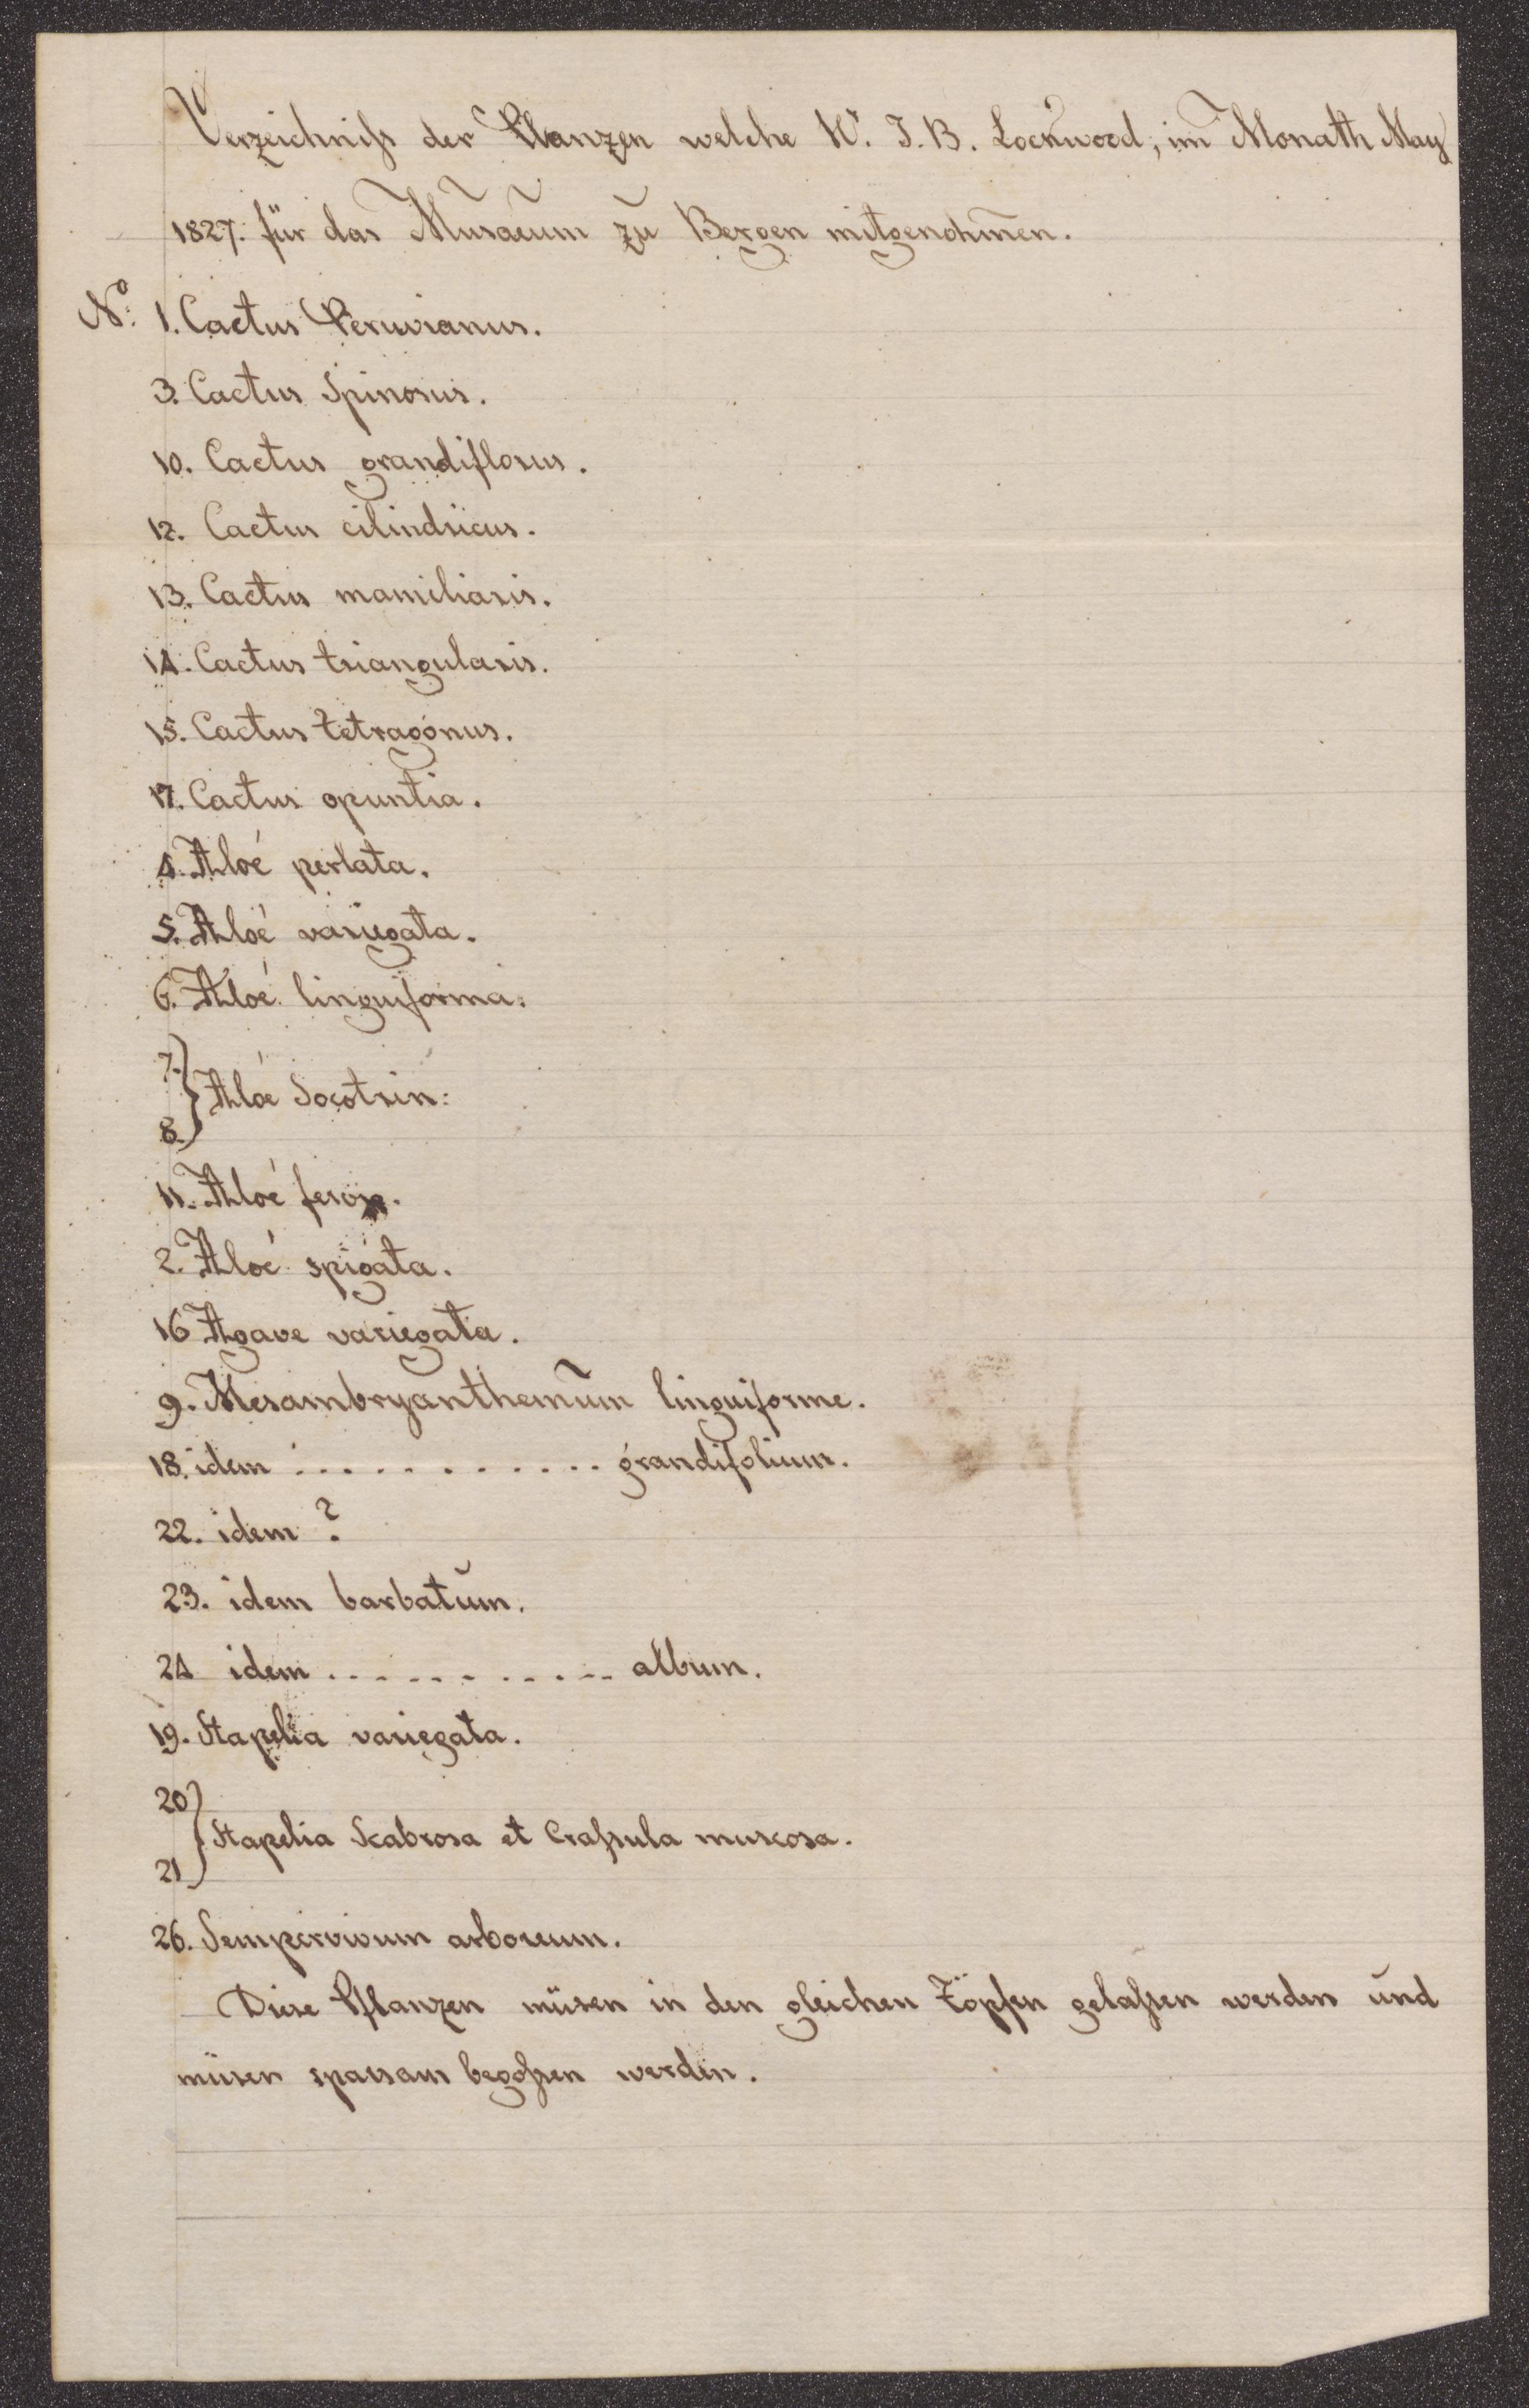 Verzeichniß der Pflanzen welche Hr. J. B. Lockwood, im Monath May
1827. für das Musaeum zu Bergen mitgenohmen.
No: 1. Cactus Peruvianus.
3. Cactus Spinosus.
10. Cactus grandiflorus.
12. Cactus cilindricus.
13. Cactus mamiliaris.
14. Cactus triangularis.
15. Cactus tetragonus.
17. Cactus opuntia.
4. Aloé perlata.
5. Aloé variegata.
6. Aloé linguiforma.
7.
8. } Aloé Socotrin:
11. Aloé ferox.
2. Aloé spigata.
16 Agave variegata.
9. Mesambryanthemum linguiforme.
18. idem . . . . . . . . . . . grandifolium.
22. idem ?
23. idem barbatum.
24 idem . . . . . . . . . . . album.
19. Stapelia variegata.
20
21 } Stapelia Scabrosa et Craßula muscosa.
26. Sempervivum arboreum.
Diese Pflanzen müsen in den gleichen Töpfen gelaßen werden und
müsen sparsam begoßen werden.